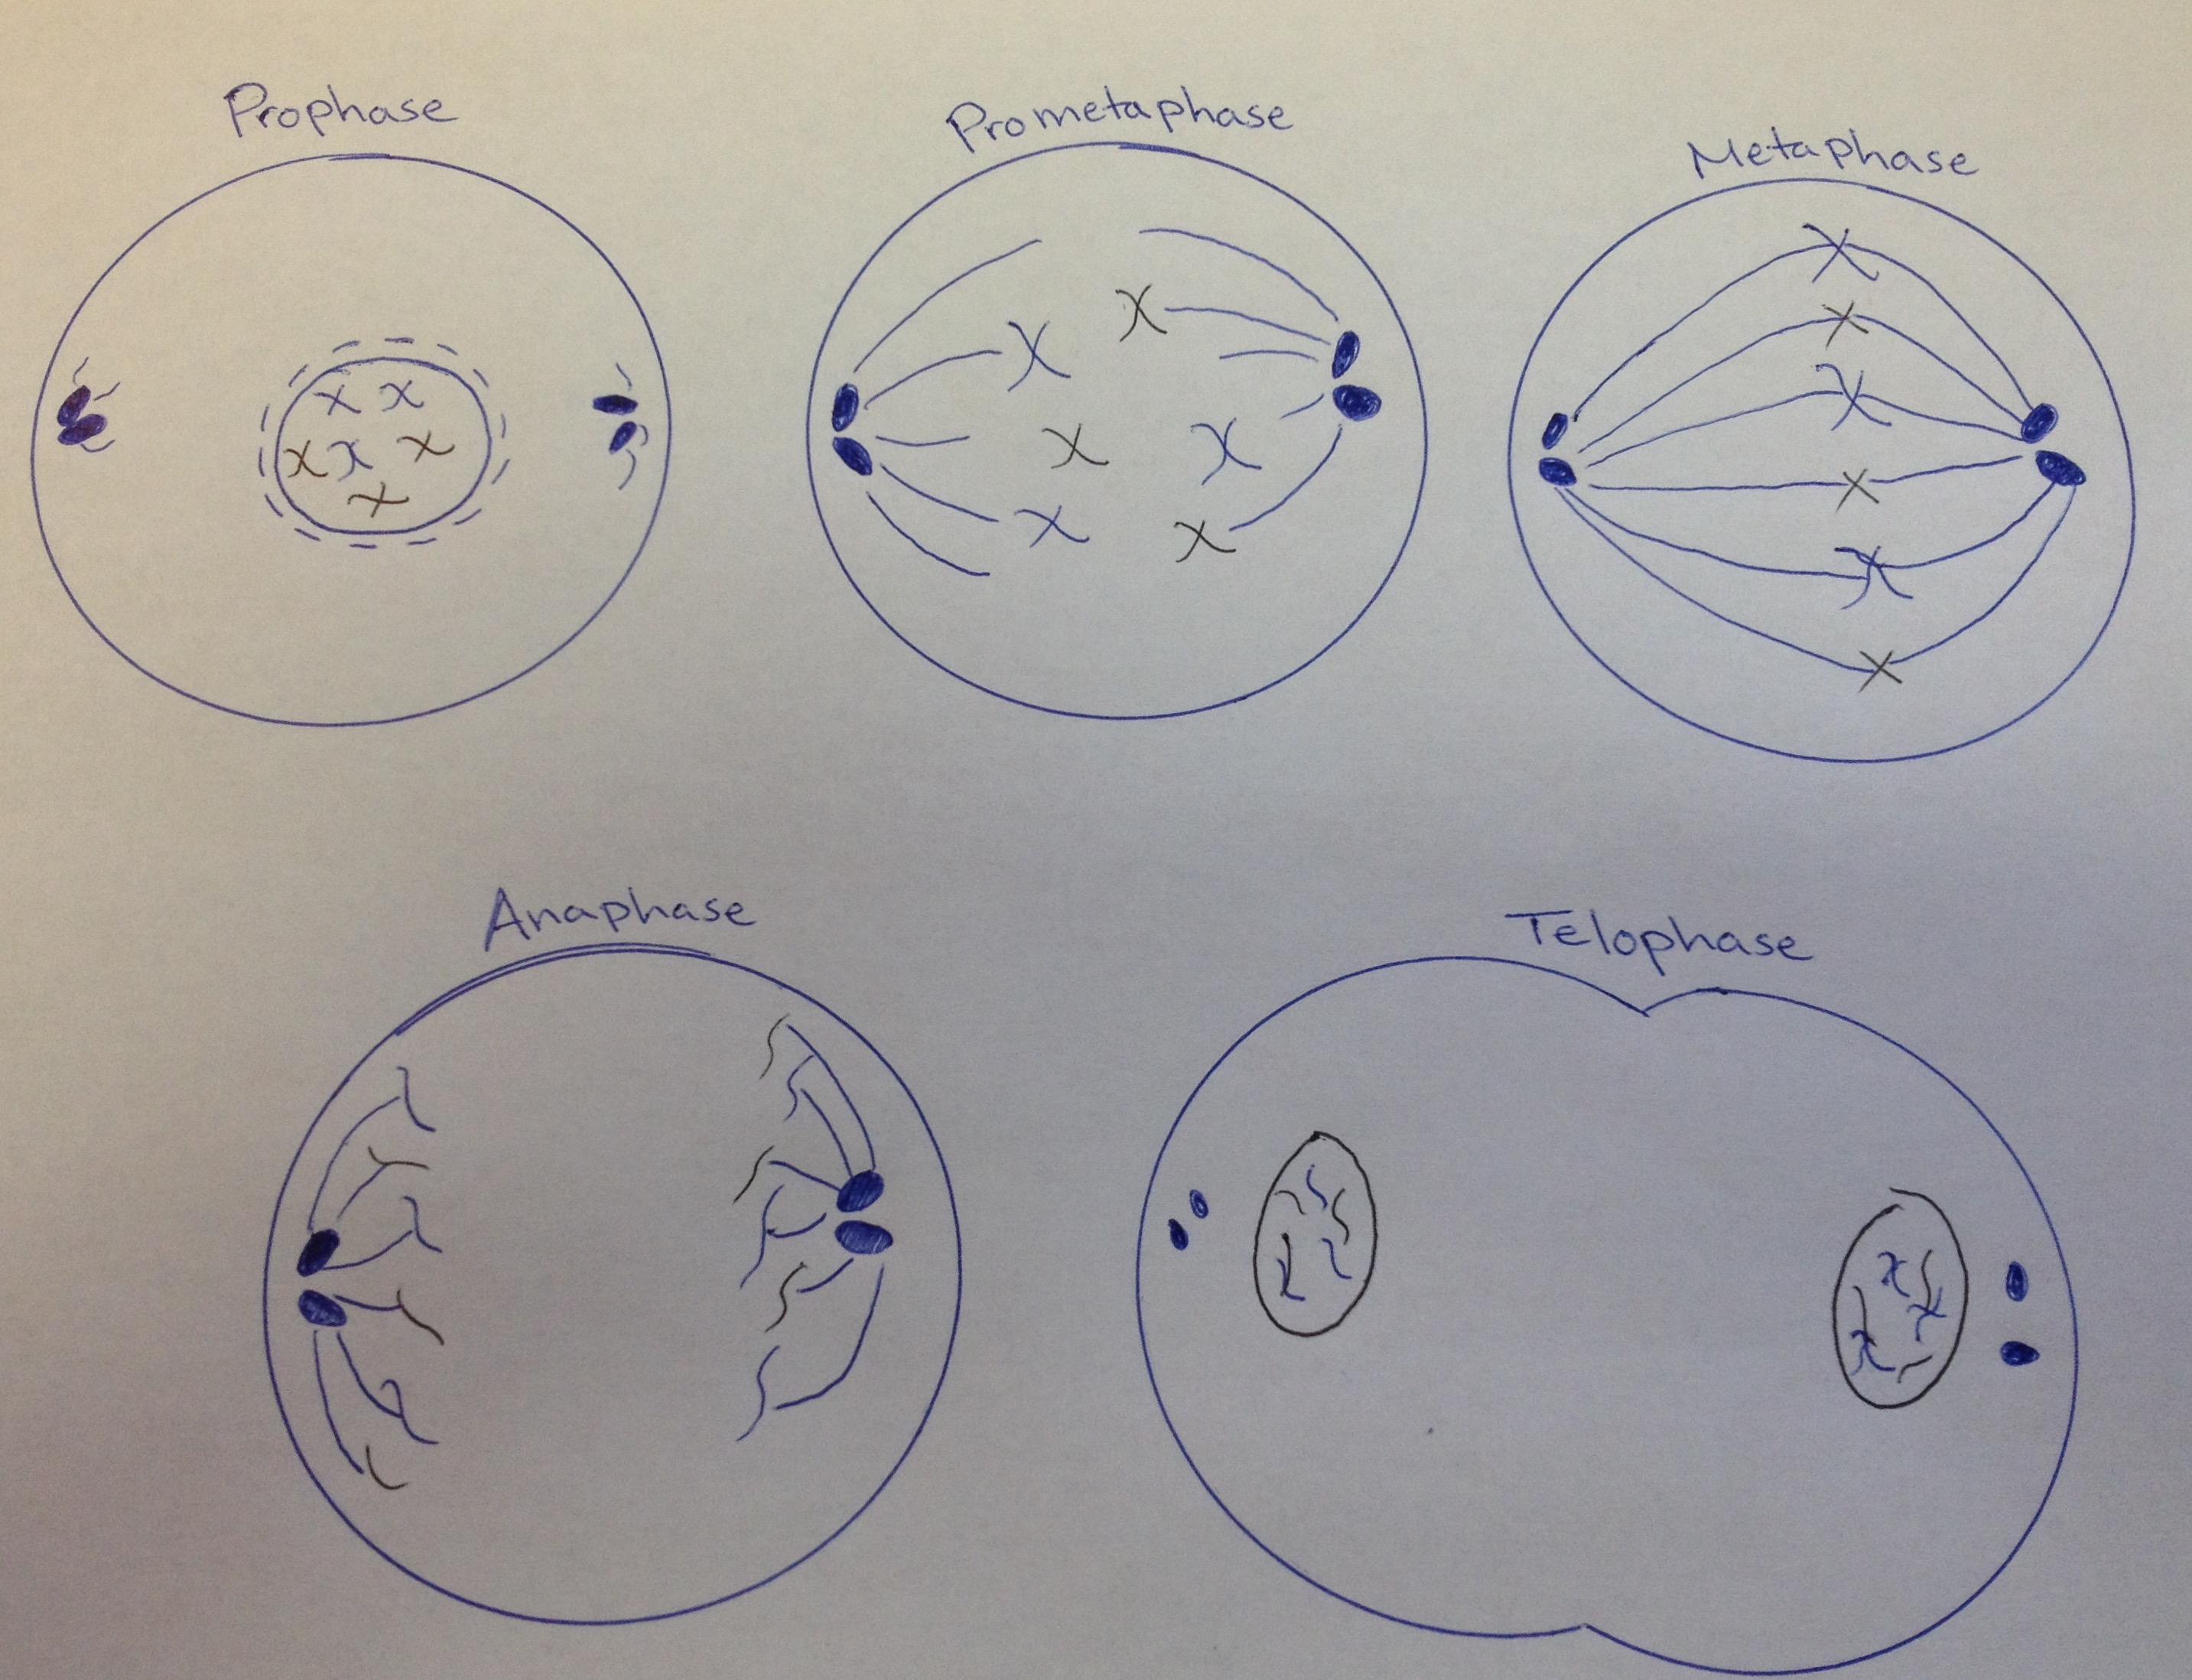 Prophase
Prometaphase
Metaphase
Anaphase
Telophase